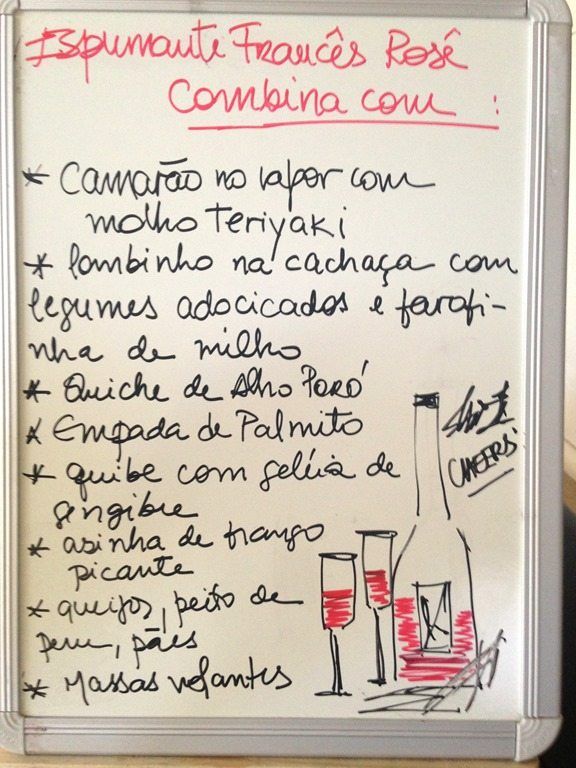 Espumante Francês Rosê
Combina com :
* Camarão no vapor com
molho Teriyaki
* lombinho na cachaça com
legumes adocicados e farofi-
nha de milho
* Quiche de Alho Poró
* Empada de Palmito
* quibe com geléia de
gengibre
* asinha de frango
picante
* queijos, peito de
peru, pães
* Massas volantes
CHEERS!